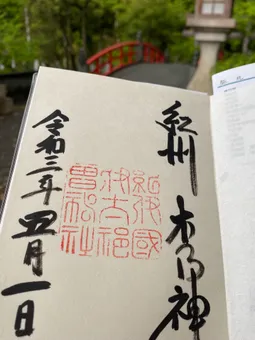 紀州 木の神
紀伊國
伊太祁
曽神社
令和三年五月一日